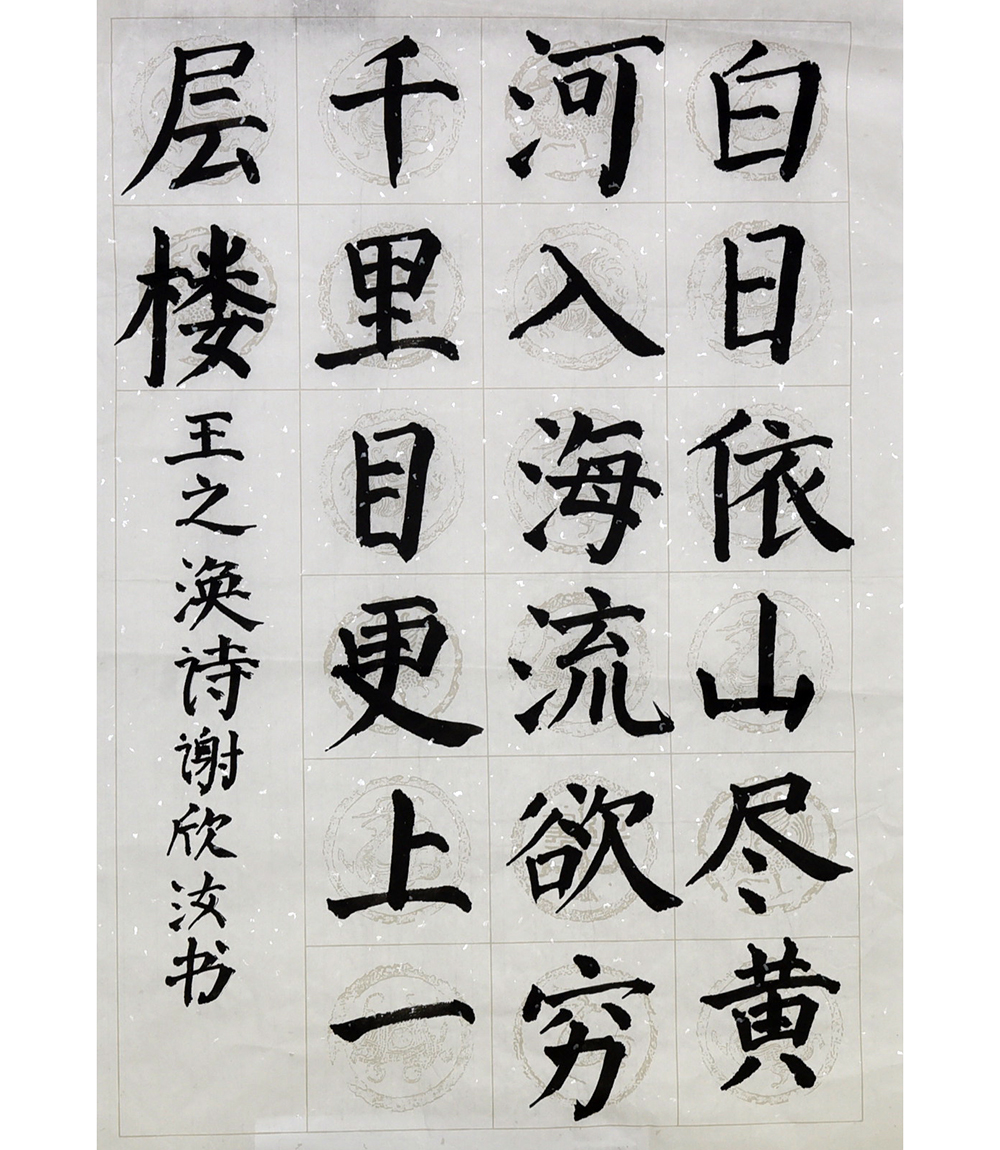 白日依山尽黄
河入海流欲穷
千里目更上一
层楼 王之涣诗谢欣汝书